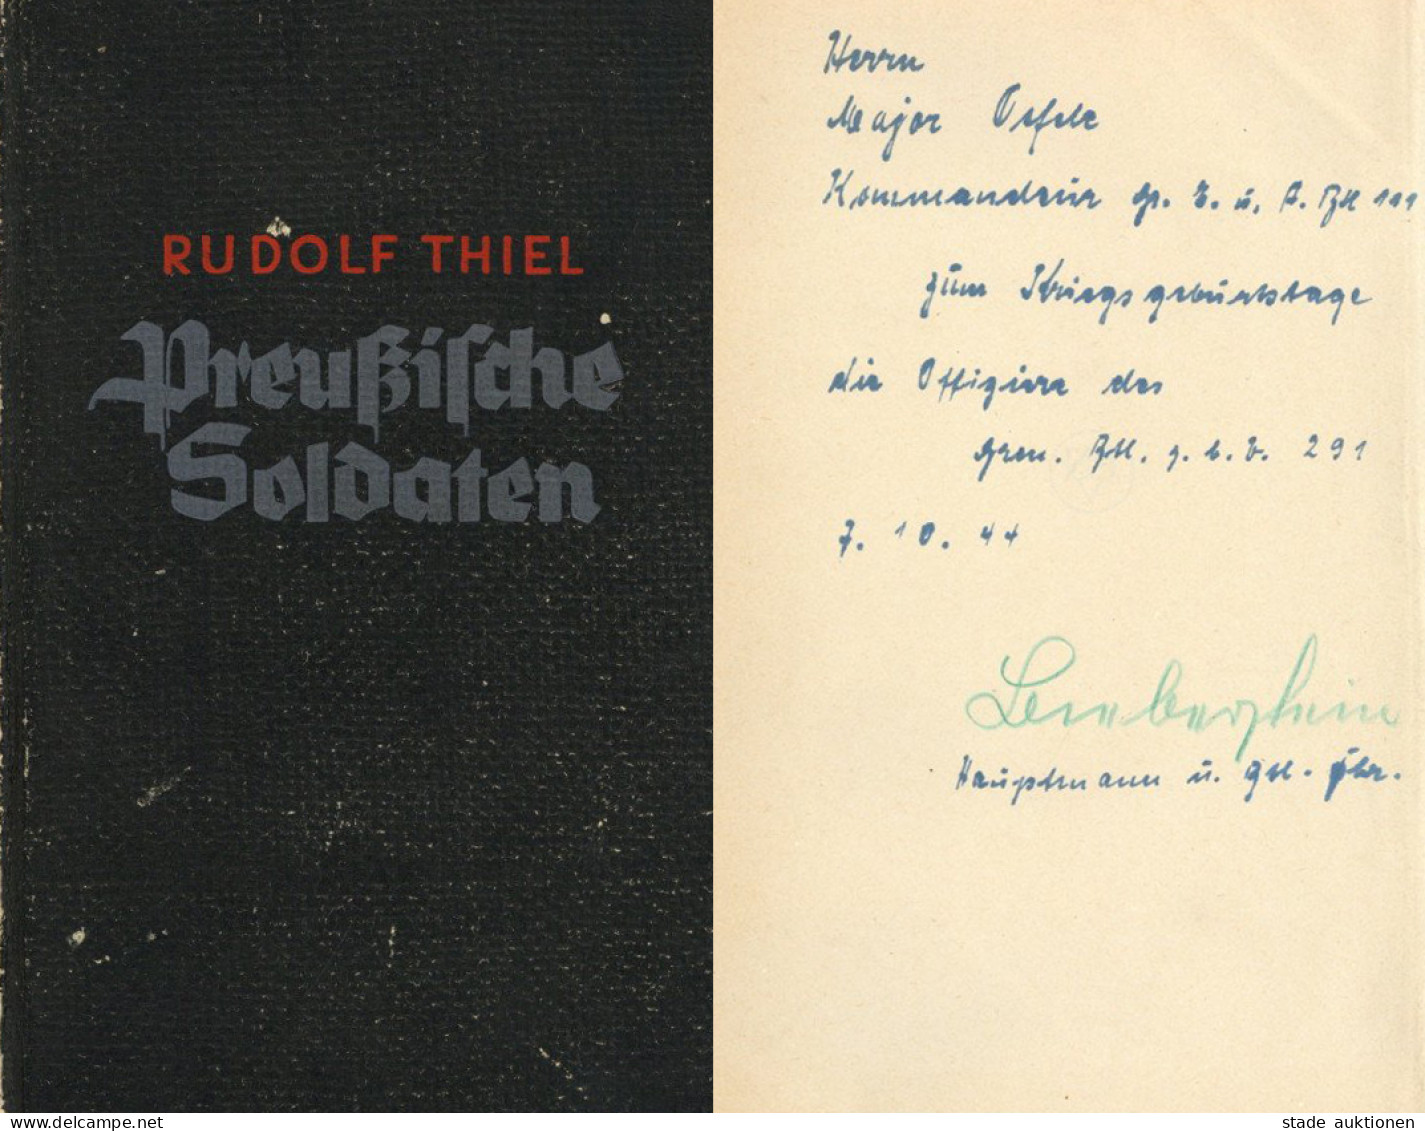 RUDOLF THIEL
Preußische
Soldaten
Herrn
Major
Kommandeur Gr. E. u. A. Btl 111
zum Kriegsgeburtstage
die Offiziere des
Gren. Btl. z. b. V. 291
7. 10. 44
Hauptmann u. Btl. Fhr.
www.delcampe.net
stade auktionen